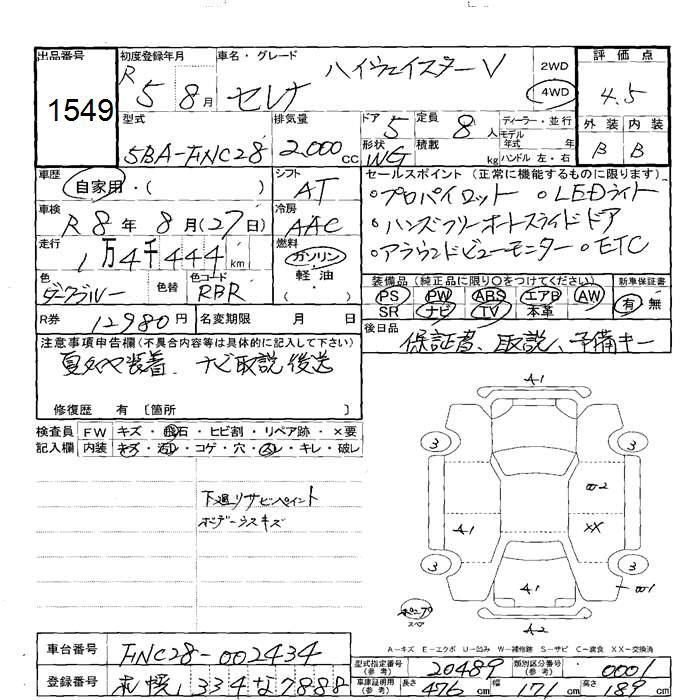 出品番号 1549
初度登録年月 R 5 8月
車名・グレード ハイウェイスターV
セレナ
2WD
4WD
評価点 4.5
外装 内装
B B
型式 5BA-FNC28
排気量 2.000cc
ドア 5
形状 WG
定員 8人
積載 kg
ディーラー・並行
モデル年式 年
ハンドル 左・右
車歴 自家用・( )
シフト AT
車検 R 8年 8月(27日)
冷房 AAC
走行 1万4千444km
燃料 ガソリン 軽油
色 ダークブルー
色替
色コード RBR
セールスポイント(正常に機能するものに限ります)
○プロパイロット ○LEDライト
○ハンズフリーオートスライドドア
○アラウンドビューモニター ○ETC
装備品(純正品に限り○をつけてください)
PS PW ABS エアB AW
SR ナビ TV 本革
新車保証書
有 無
R券 12980円
名変期限 月 日
後日品 保証書、取説、予備キー
注意事項申告欄(不具合内容等は具体的に記入して下さい)
夏タイヤ装着、ナビ取説後送
修復歴 有〔箇所 〕
検査員 FW キズ・飛石・ヒビ割・リペア跡・×要
記入欄 内装 キズ・汚レ・コゲ・穴・スレ・キレ・破レ
下廻りサビペイント
ボデーうスキズ
A1
3 3
W2
A1 XX
3 3
A1
W1
A2
スペア
A-キズ E-エクボ U-凹み W-補修跡 S-サビ C-腐食 XX-交換済
車台番号 FNC28-002434
登録番号 札幌 334 な 7888
型式指定番号(参考) 20489
類別区分番号(参考) 0001
車庫証明用(参考) 長さ 476cm 幅 171cm 高さ 189cm